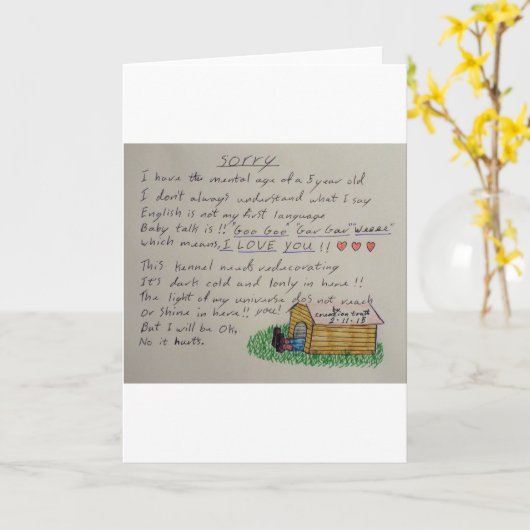 Sorry
I have the mental age of a 5 year old
I don't always understand what I say
English is not my first language
Baby talk is !! "Goo Goo" "Gar Gar" "Weeee"
which means, I LOVE YOU !!
This kennel needs redecorating
It's dark cold and lonly in here !!
The light of my universe dos not reach
Or shine in here !! you!
But I will be Ok.
No it hurts.
by
creation truth
2.11.15